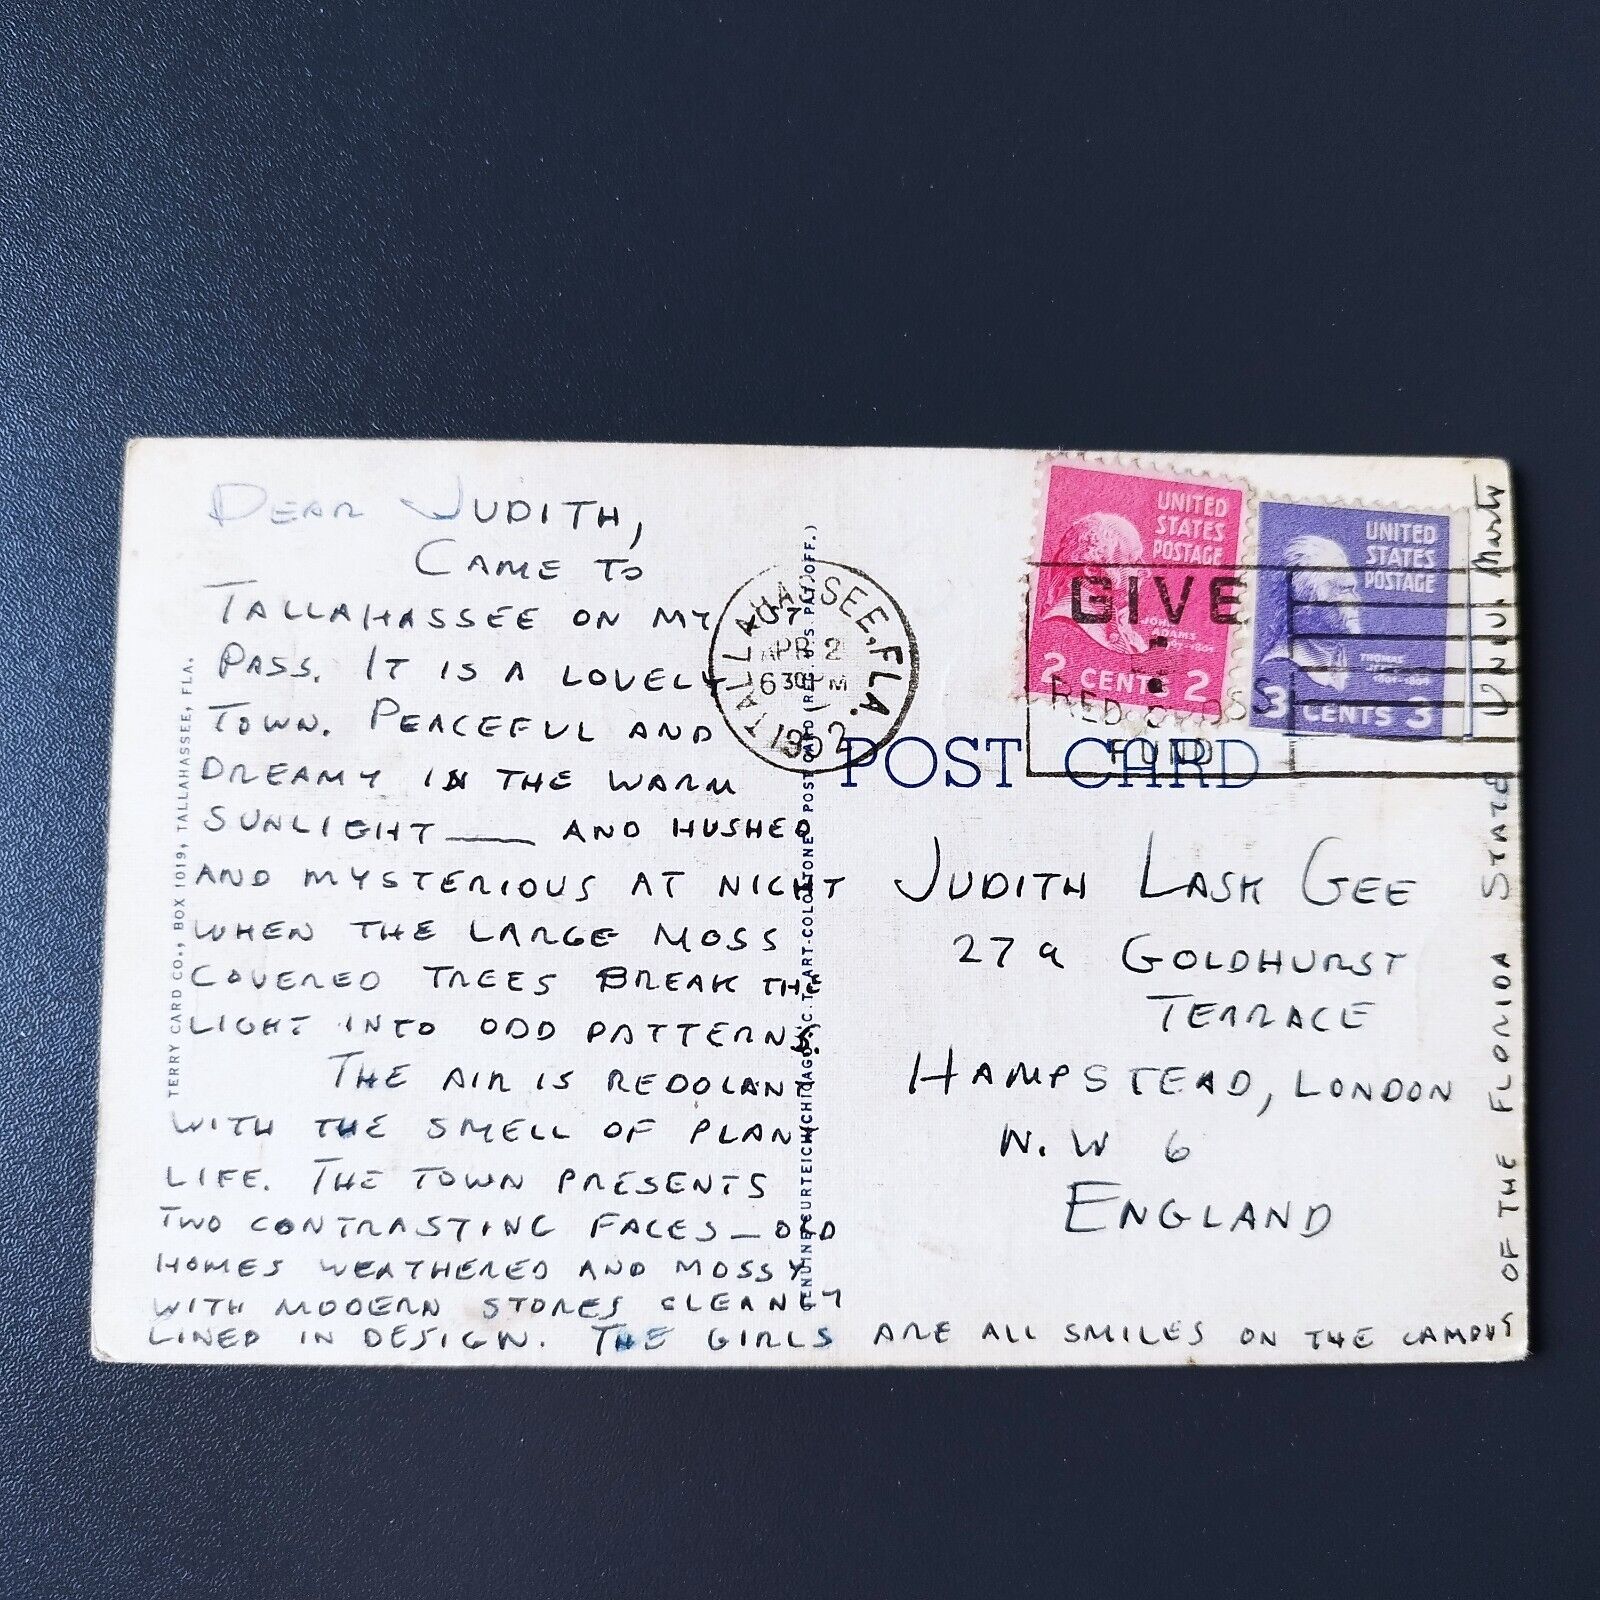 DEAR JUDITH,
CAME TO
TALLAHASSEE ON MY
PASS. IT IS A LOVELY
TOWN. PEACEFUL AND
DREAMY IN THE WARM
SUNLIGHT — AND HUSHED
AND MYSTERIOUS AT NIGHT
WHEN THE LARGE MOSS
COVERED TREES BREAK THE
LIGHT INTO ODD PATTERNS.
THE AIR IS REDOLANT
WITH THE SMELL OF PLANT
LIFE. THE TOWN PRESENTS
TWO CONTRASTING FACES — OLD
HOMES WEATHERED AND MOSSY
WITH MODERN STORES CLEANLY
LINED IN DESIGN. THE GIRLS ARE ALL SMILES ON THE CAMPUS
OF THE FLORIDA STATE UNIV. Marty
TERRY CARD CO., BOX 1019, TALLAHASSEE, FLA.
GENUINE CURTEICH-CHICAGO "C.T. ART-COLORTONE" POST CARD (REG. U.S. PAT. OFF.)
TALLAHASSEE, FLA.
APR 2
6 30 PM
1952
UNITED
STATES
POSTAGE
JOHN
ADAMS
2 CENTS 2
UNITED
STATES
POSTAGE
THOMAS
1801-1809
3 CENTS 3
GIVE
RED CROSS
FUND
POST CARD
JUDITH LASK GEE
27 a GOLDHURST
TERRACE
HAMPSTEAD, LONDON
N. W 6
ENGLAND